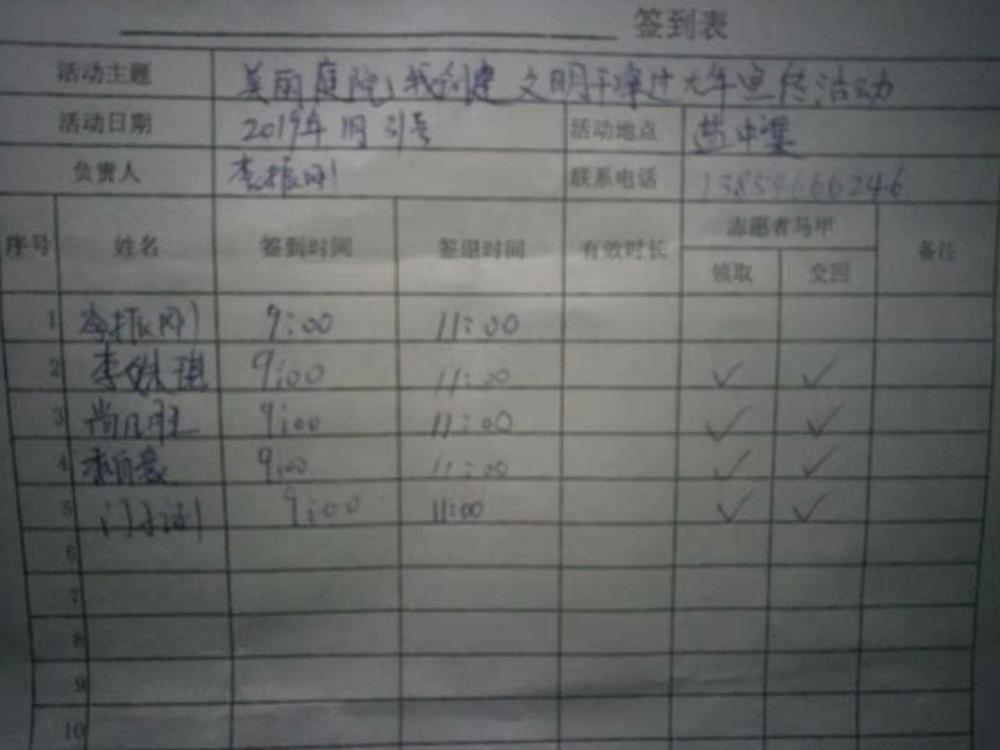 签到表
活动主题 美丽庭院我创建 文明干净过大年宣传活动
活动日期 2019年1月31号 活动地点
负责人 李振刚 联系电话
序号 姓名 签到时间 签退时间 有效时长 志愿者马甲 备注
领取 交回
1 李振刚 9:00 11:00
2 李 琪 9:00 11:00 ✓ ✓
3 尚 9:00 11:00 ✓ ✓
4 9:00 11:00 ✓ ✓
5 门 9:00 11:00 ✓ ✓
6
7
8
9
10